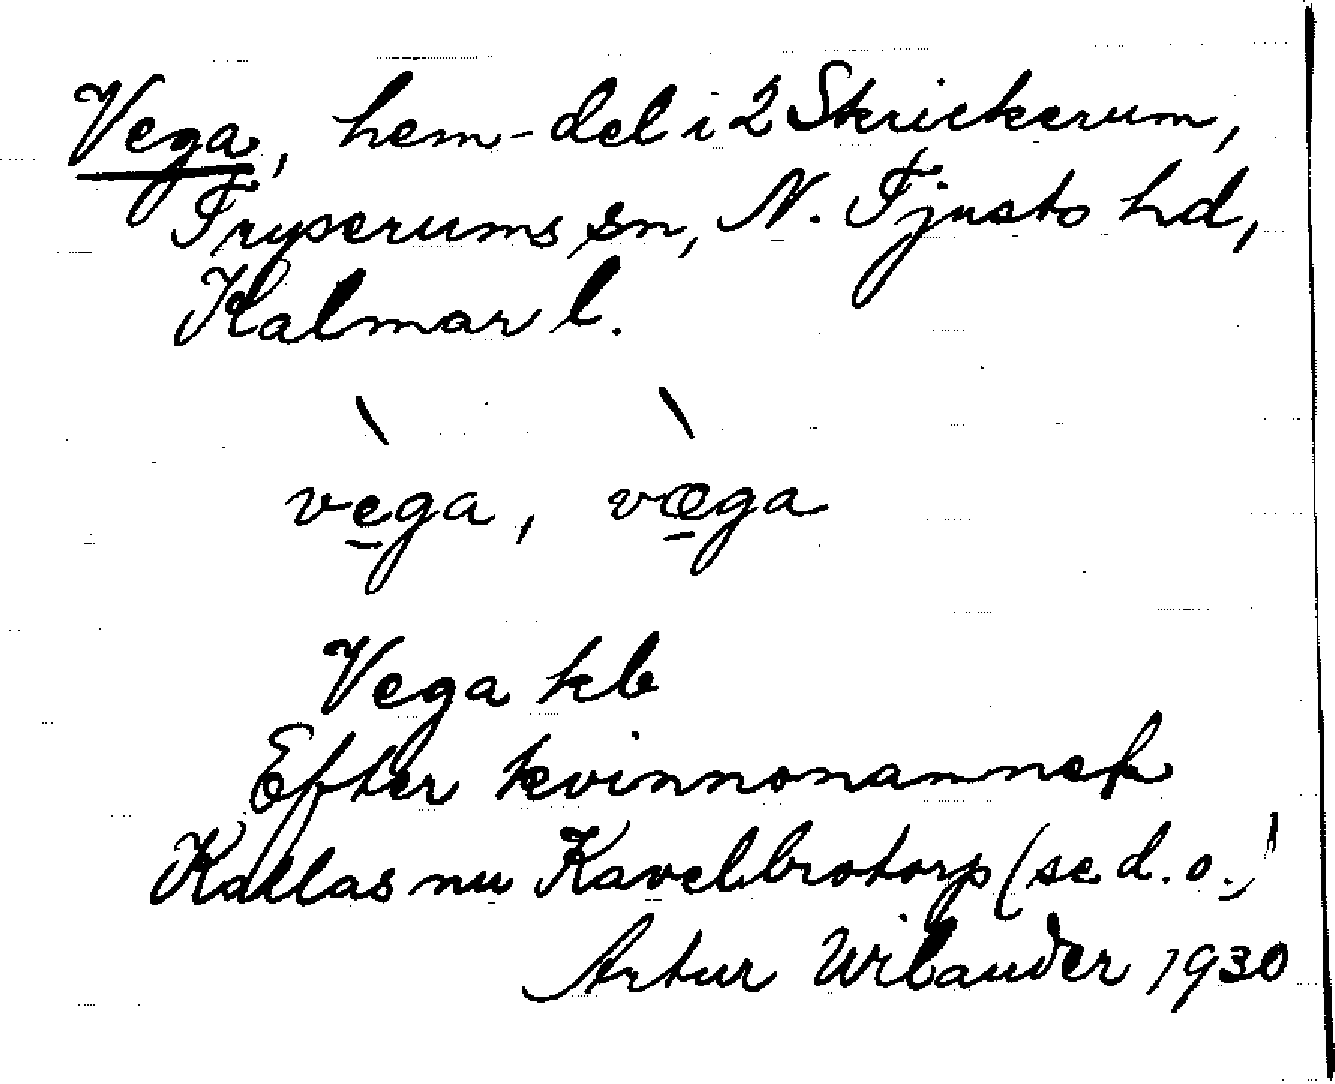 Vega, hem-del i 2 Skrickerum,
Tryserums sn, N. Tjusts hd,
Kalmar l.
vè̱ga, væ̱̀ga
Vega kb
Efter kvinnonamnet
Kallas nu Kavelbrotorp (se d. o.)!
Artur Wilander 1930